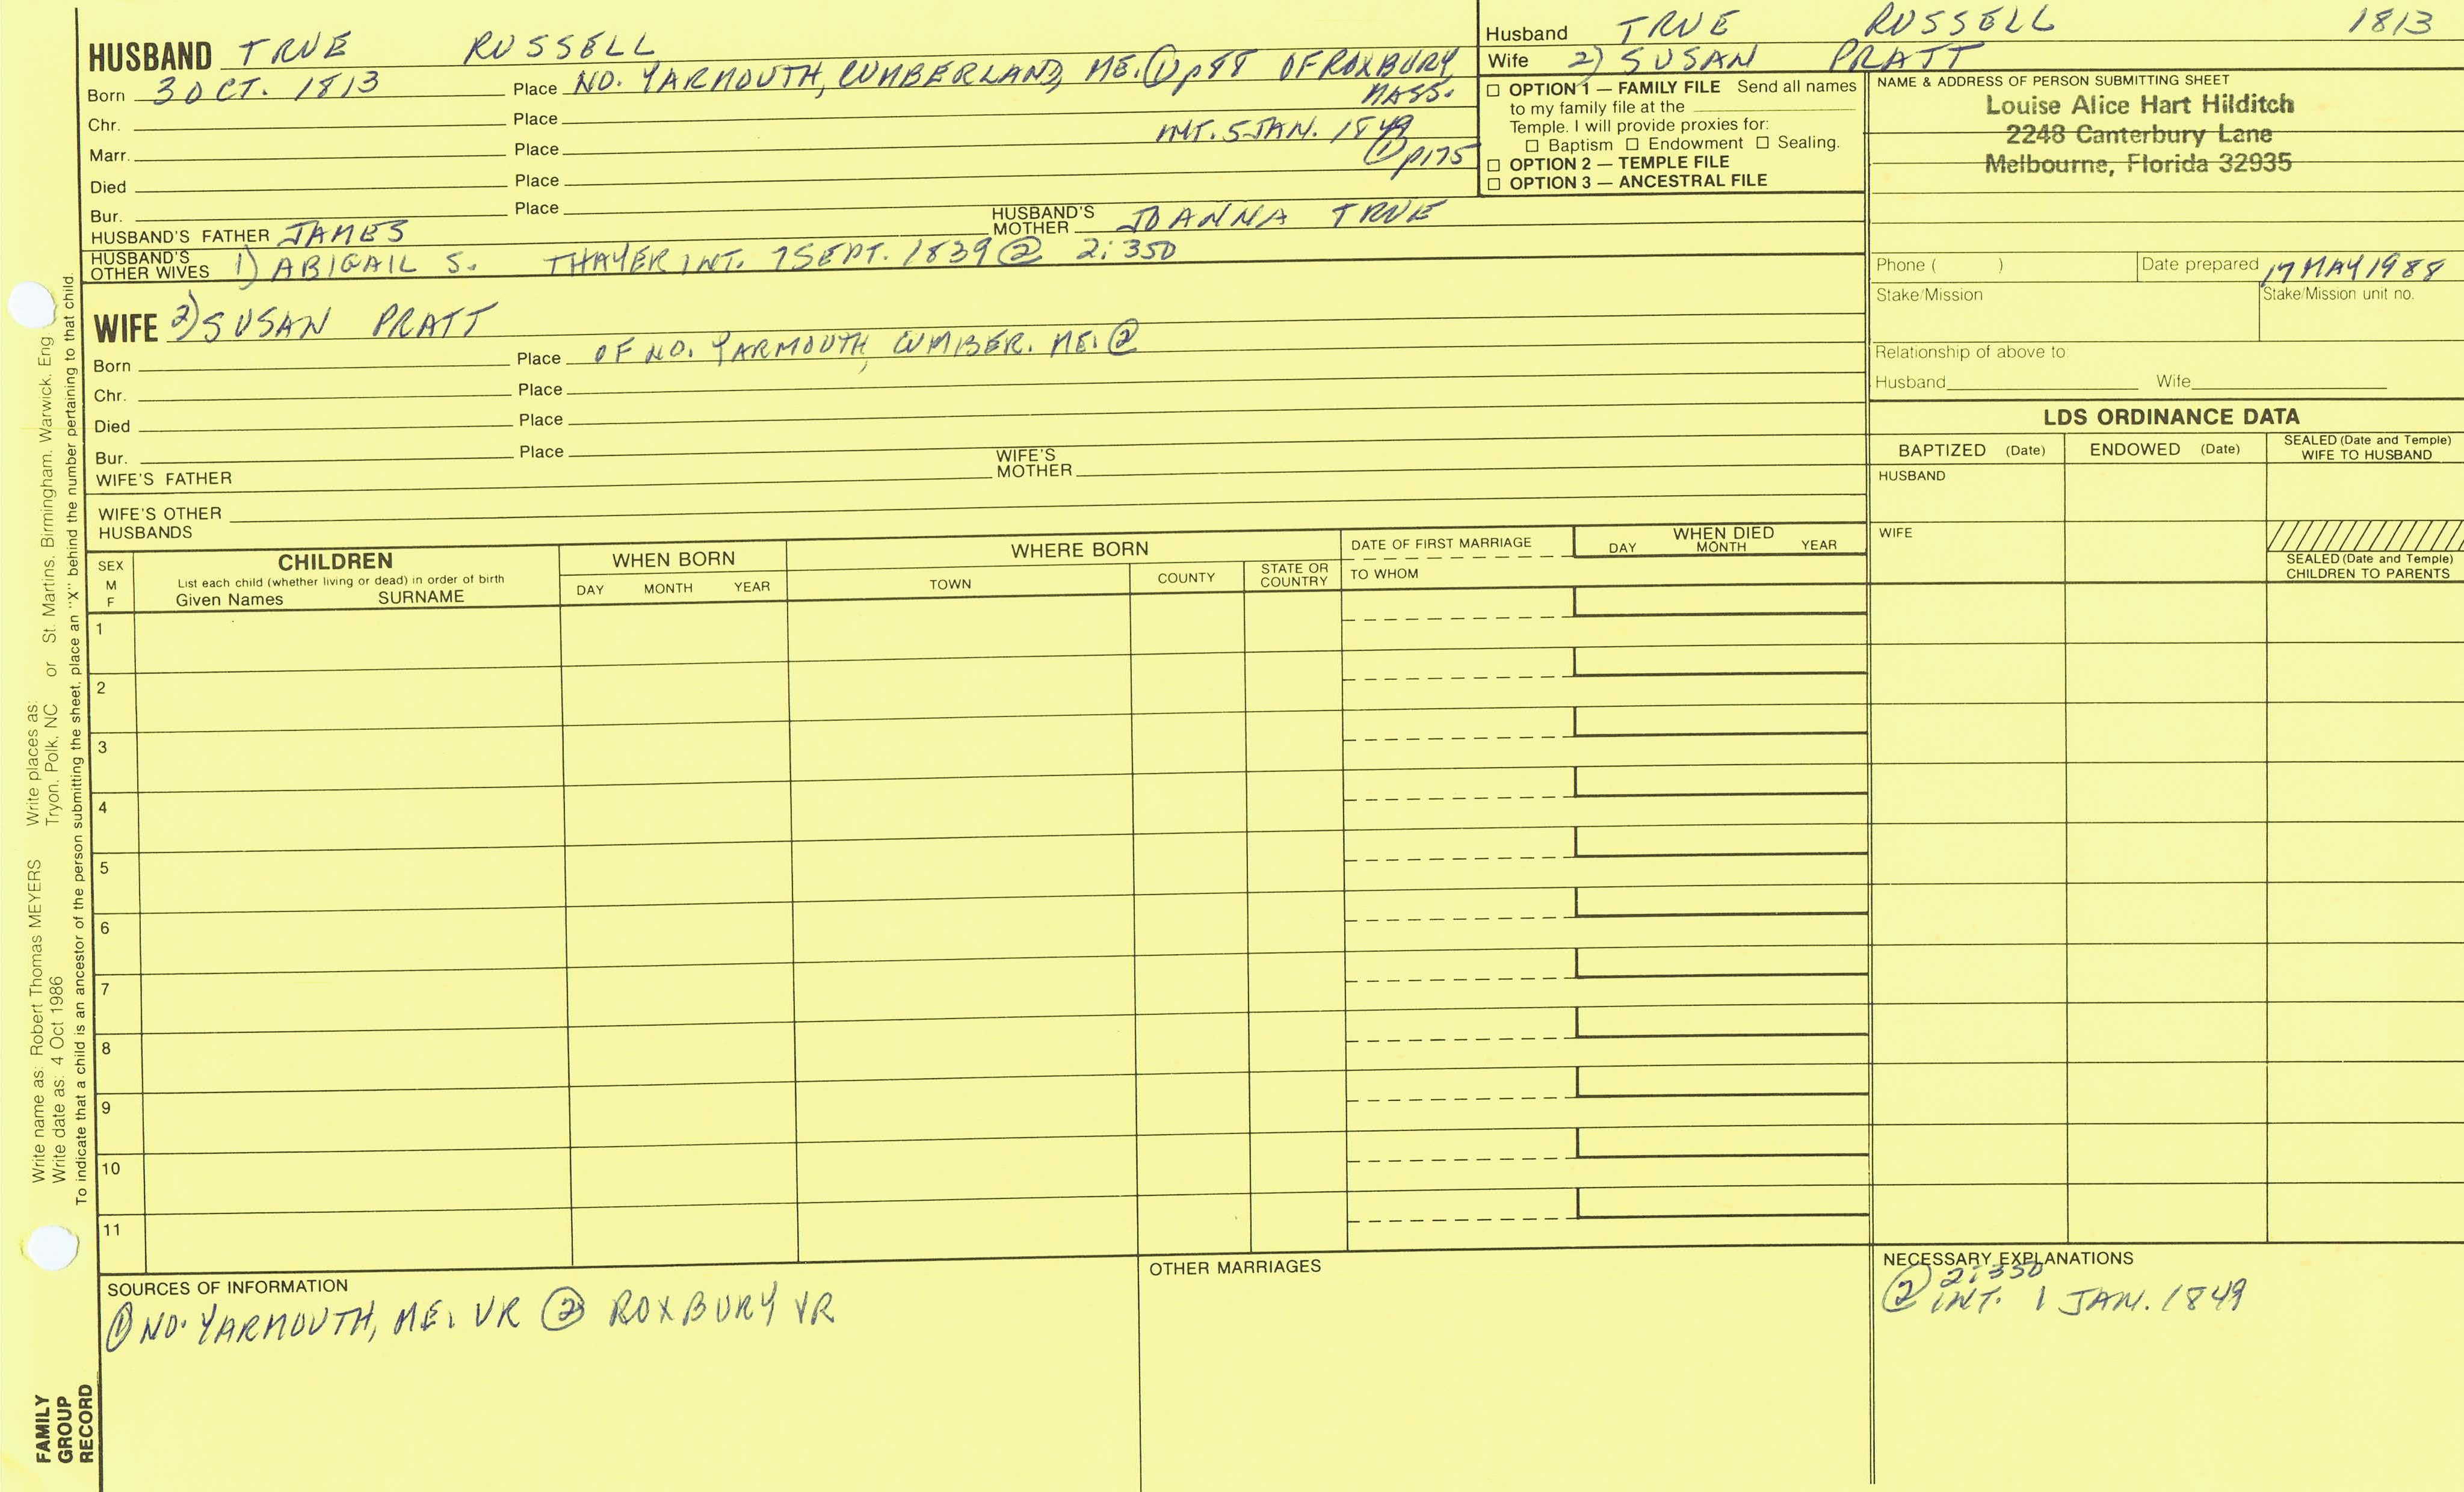 HUSBAND TRUE RUSSELL
Born 3 OCT. 1813 Place NO. YARMOUTH, CUMBERLAND, ME. ① p88 OF ROXBURY, MASS.
Chr. Place
INT. 5 JAN. 1849
Marr. Place ① p175
Died Place
Bur. Place
HUSBAND'S FATHER JAMES HUSBAND'S MOTHER JOANNA TRUE
HUSBAND'S OTHER WIVES 1) ABIGAIL S. THAYER INT. 7 SEPT. 1839 ② 2:350
WIFE 2) SUSAN PRATT
Born Place OF NO. YARMOUTH, CUMBER. ME. ②
Chr. Place
Died Place
Bur. Place
WIFE'S FATHER WIFE'S MOTHER
WIFE'S OTHER HUSBANDS
Husband TRUE RUSSELL 1813
Wife 2) SUSAN PRATT
☐ OPTION 1 — FAMILY FILE Send all names
to my family file at the
Temple. I will provide proxies for:
☐ Baptism ☐ Endowment ☐ Sealing.
☐ OPTION 2 — TEMPLE FILE
☐ OPTION 3 — ANCESTRAL FILE
NAME & ADDRESS OF PERSON SUBMITTING SHEET
Louise Alice Hart Hilditch
2248 Canterbury Lane
Melbourne, Florida 32935
Phone ( ) Date prepared 17 MAY 1988
Stake/Mission Stake/Mission unit no.
Relationship of above to
Husband Wife
LDS ORDINANCE DATA
BAPTIZED (Date) ENDOWED (Date) SEALED (Date and Temple) WIFE TO HUSBAND
HUSBAND
WIFE
SEALED (Date and Temple) CHILDREN TO PARENTS
SEX M F
CHILDREN
List each child (whether living or dead) in order of birth
Given Names SURNAME
WHEN BORN
DAY MONTH YEAR
WHERE BORN
TOWN COUNTY STATE OR COUNTRY
DATE OF FIRST MARRIAGE
TO WHOM
WHEN DIED
DAY MONTH YEAR
1
2
3
4
5
6
7
8
9
10
11
SOURCES OF INFORMATION
① NO. YARMOUTH, ME. VR ② ROXBURY VR
OTHER MARRIAGES
NECESSARY EXPLANATIONS
2:350
② INT. 1 JAN. 1849
Write name as: Robert Thomas MEYERS Write places as:
Write date as: 4 Oct 1986 Tryon, Polk, NC or St. Martins, Birmingham, Warwick, Eng
To indicate that a child is an ancestor of the person submitting the sheet, place an "X" behind the number pertaining to that child.
FAMILY
GROUP
RECORD